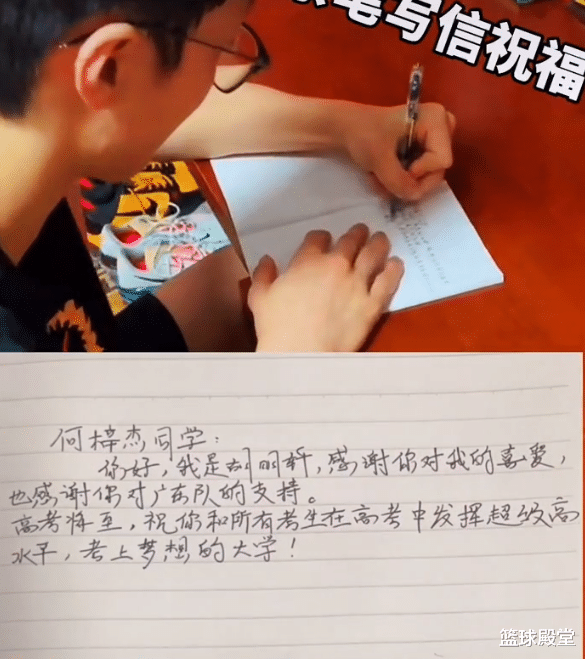 笔写信祝福
何梓杰同学:
你好,我是胡明轩,感谢你对我的喜爱,
也感谢你对广东队的支持。
高考将至,祝你和所有考生在高考中发挥超级高
水平,考上梦想的大学!
篮球殿堂